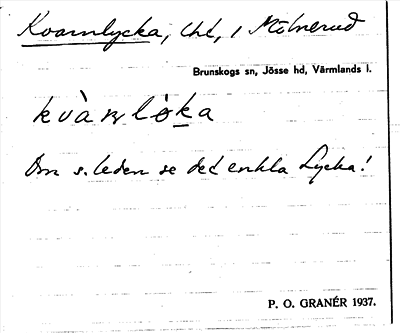 Kvarnlycka, Uhl, i Mölnerud
Brunskogs sn, Jösse hd, Värmlands l.
kvàɳlỏka
Om s. leden se det enkla Lycka!
P. O. GRANÉR 1937.